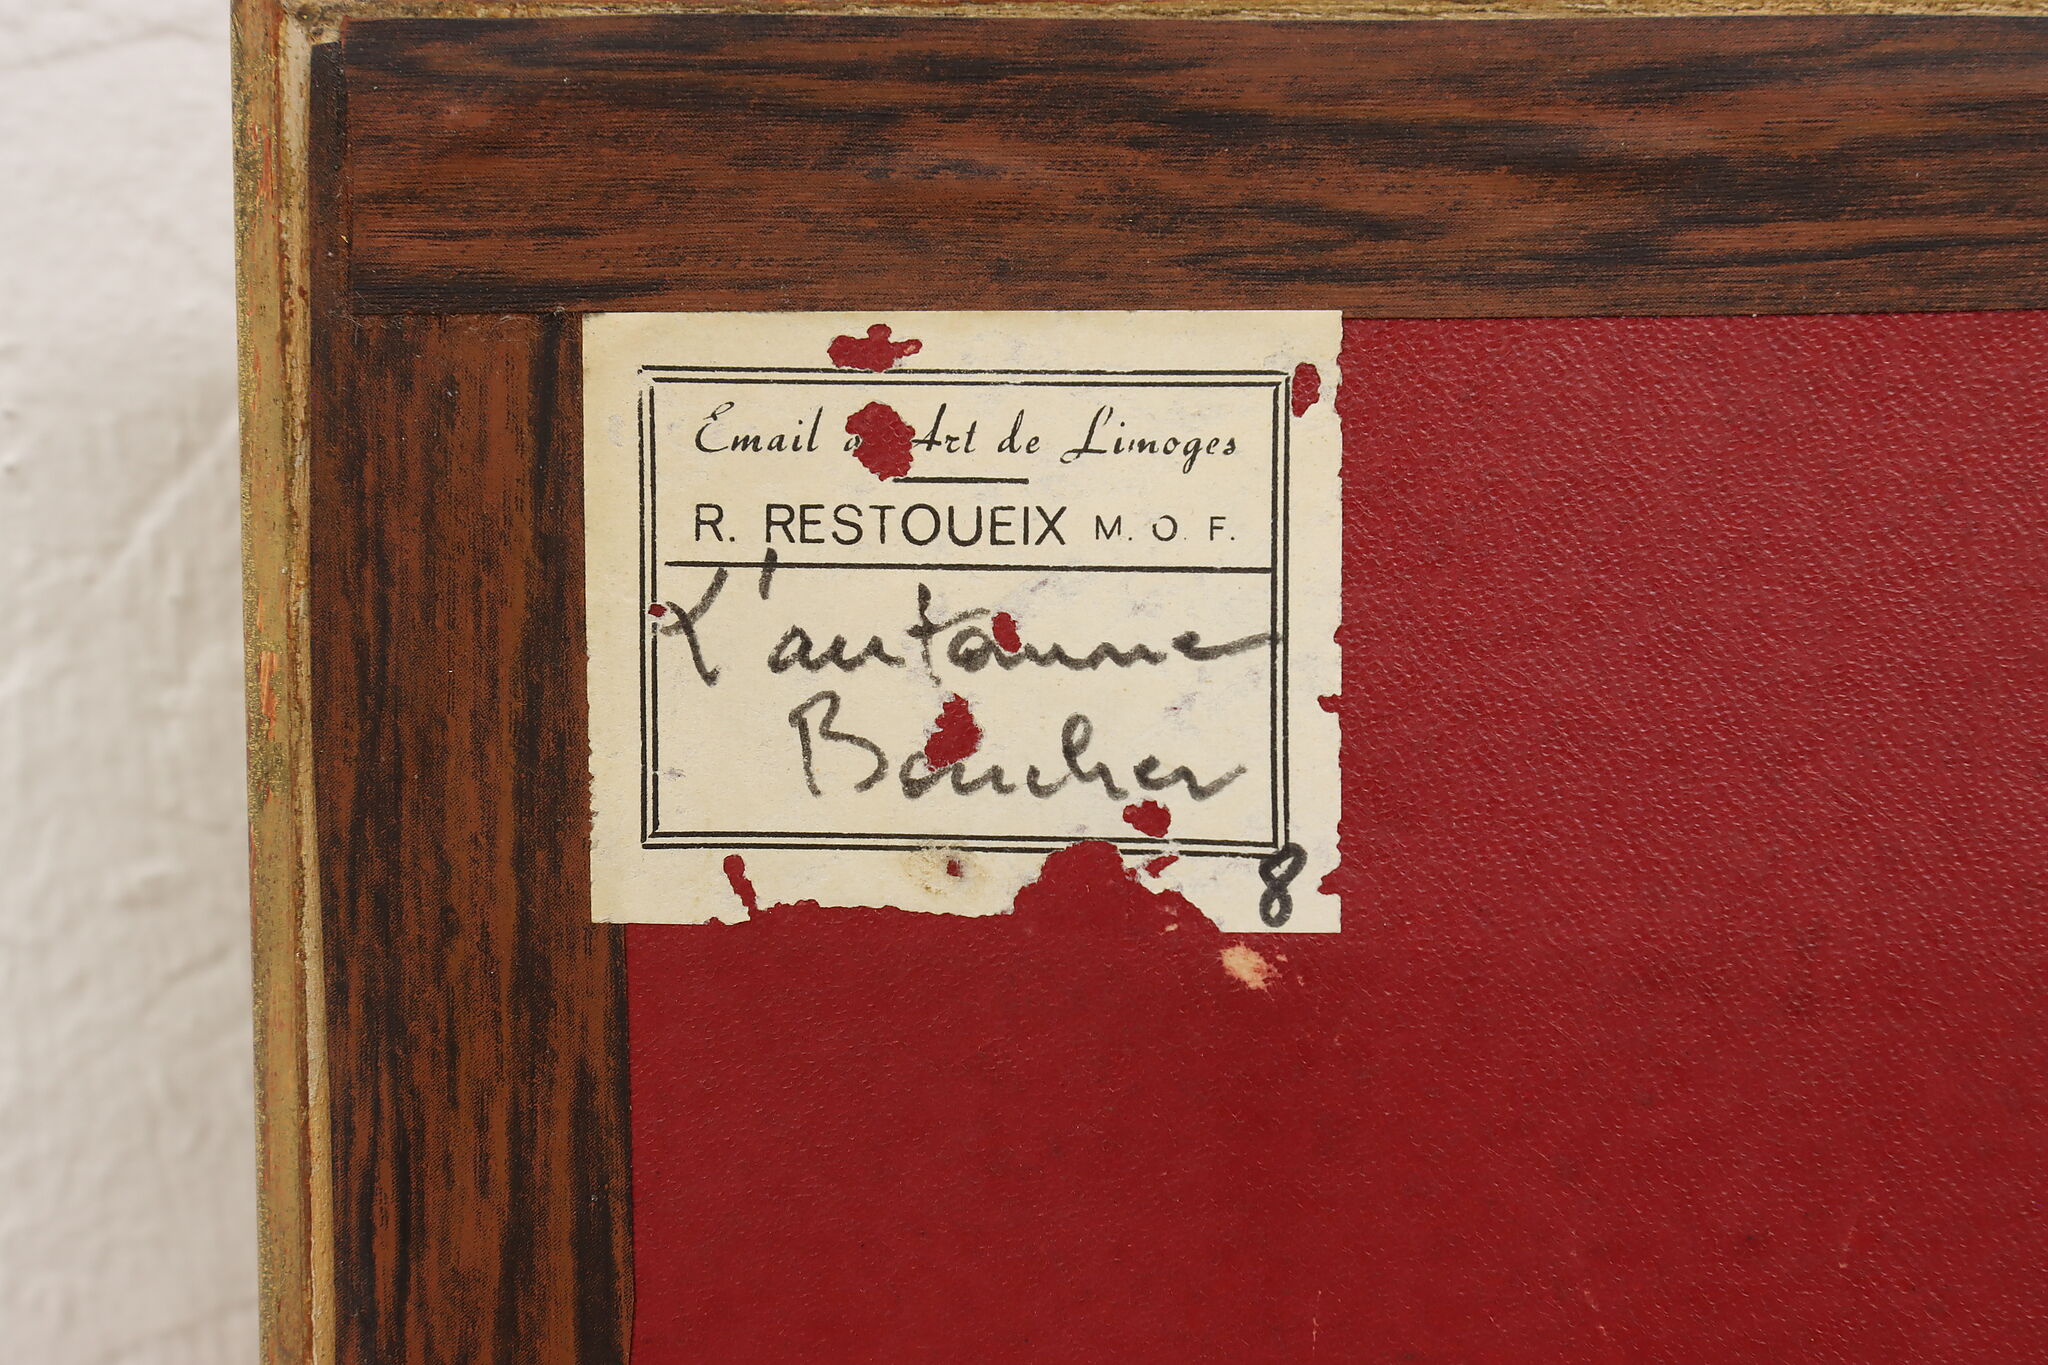 Email d'Art de Limoges
R. RESTOUEIX M. O. F.
L'automne
Boucher
8